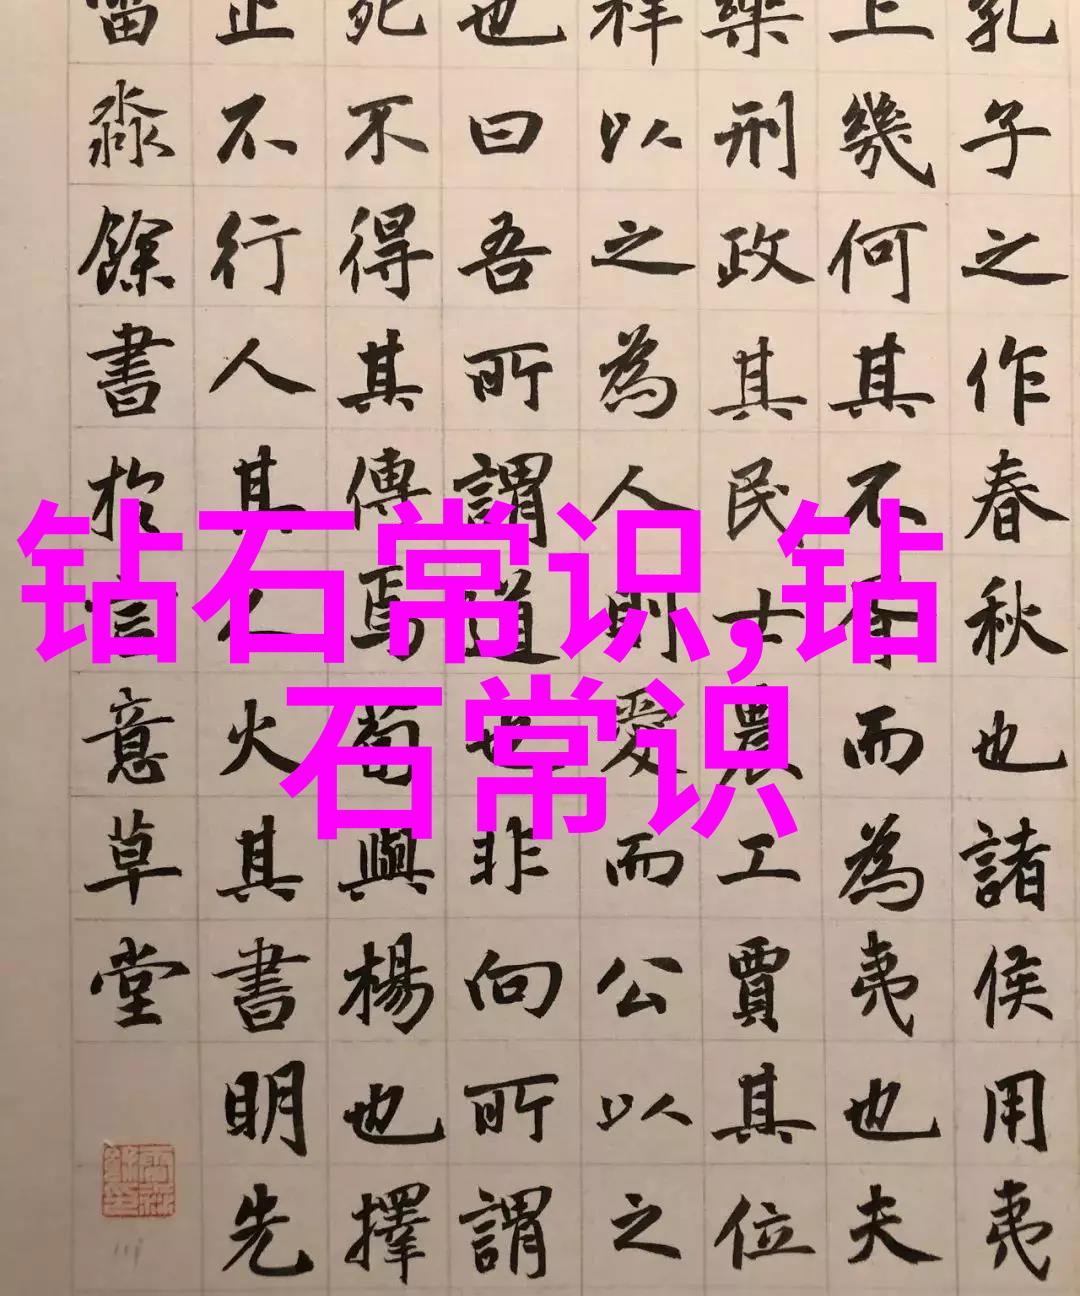 钻石常识,钻
石常识
孔子之作春秋也諸侯用夷
上幾何其不胥而為夷也夫
樂刑政其民士農工賈其位
祥以之為人則愛而公以之
也曰吾所謂道也非向所謂
死不得其傳焉荀與楊也擇
止不行人其人火其書明先
淼餘書於三意草堂